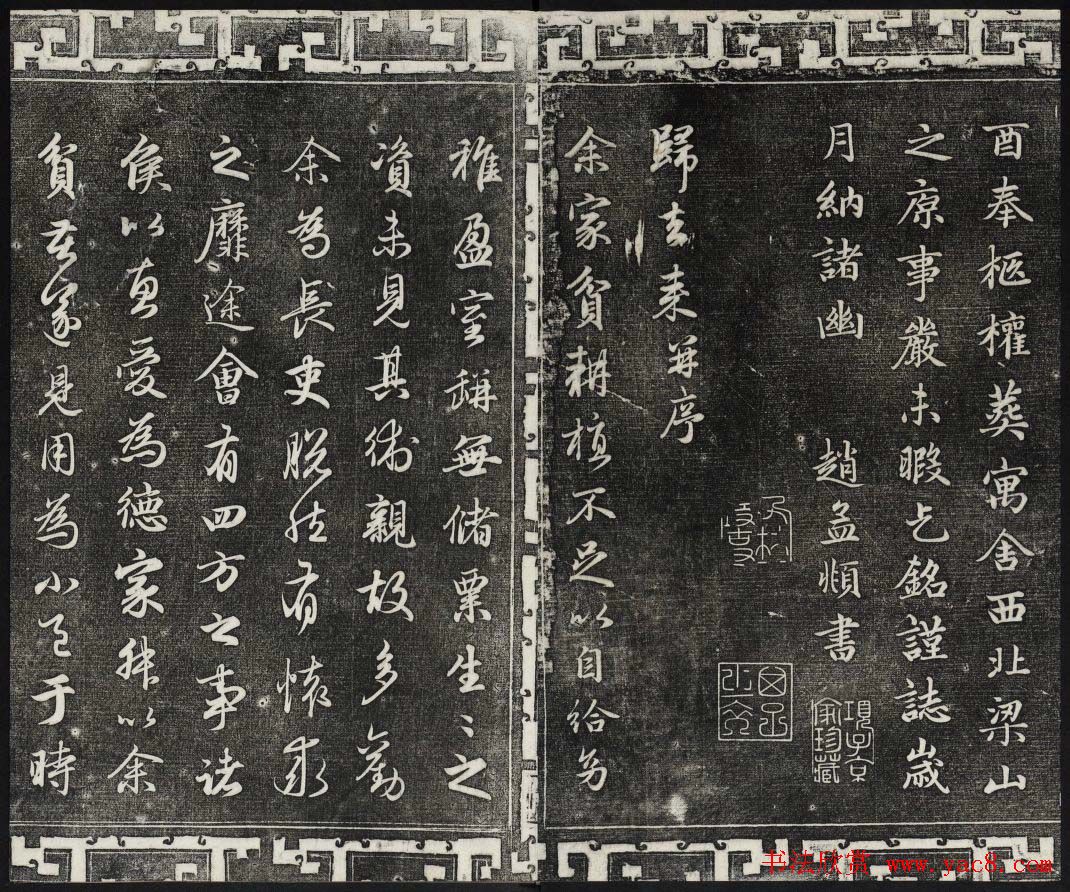 酉奉柩權葬寓舍西北梁山
之原事嚴未暇乞銘謹誌歲
月納諸幽 趙孟頫書
項子京家珍藏
歸去來并序
余家貧耕植不足以自給幼
稚盈室缾無儲粟生〻之
資未見其術親故多勸
余為長吏脫然有懷求
之靡途會有四方之事諸
侯以惠愛為德家叔以余
貧苦遂見用為小邑于時
书法欣赏 www.yac8.com